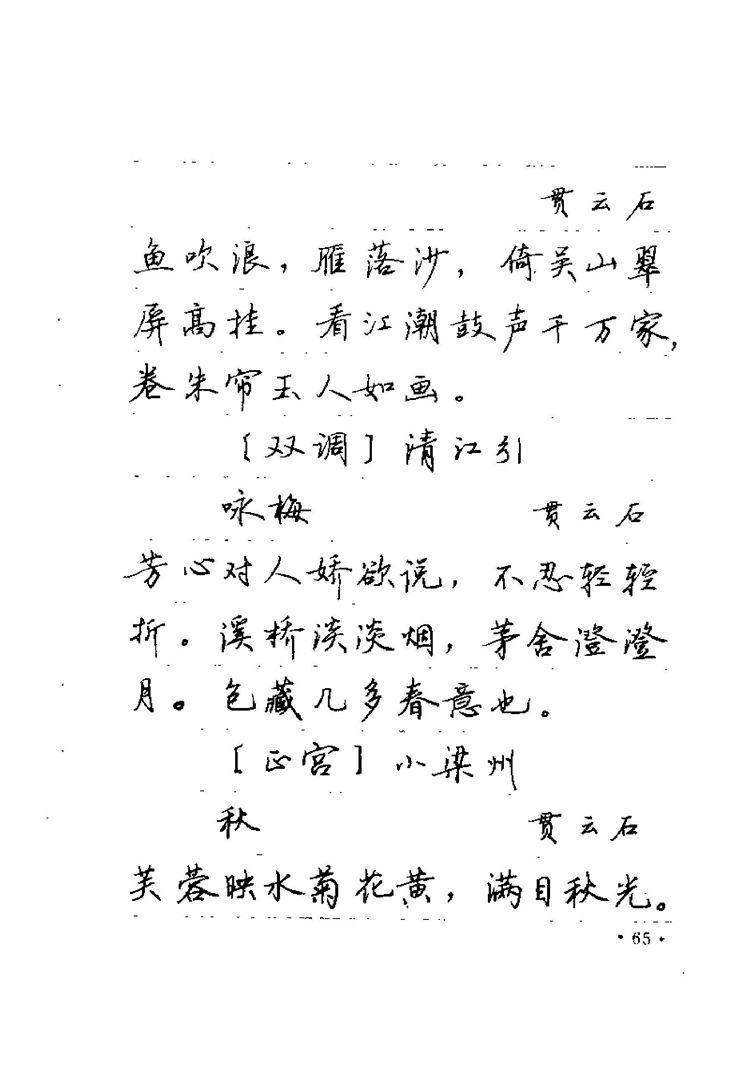 贯云石
鱼吹浪，雁落沙，倚吴山翠
屏高挂。看江潮鼓声千万家，
卷朱帘玉人如画。
［双调］清江引
咏梅 贯云石
芳心对人娇欲说，不忍轻轻
折。溪桥淡淡烟，茅舍澄澄
月。包藏几多春意也。
［正宫］小梁州
秋 贯云石
芙蓉映水菊花黄，满目秋光。
·65·